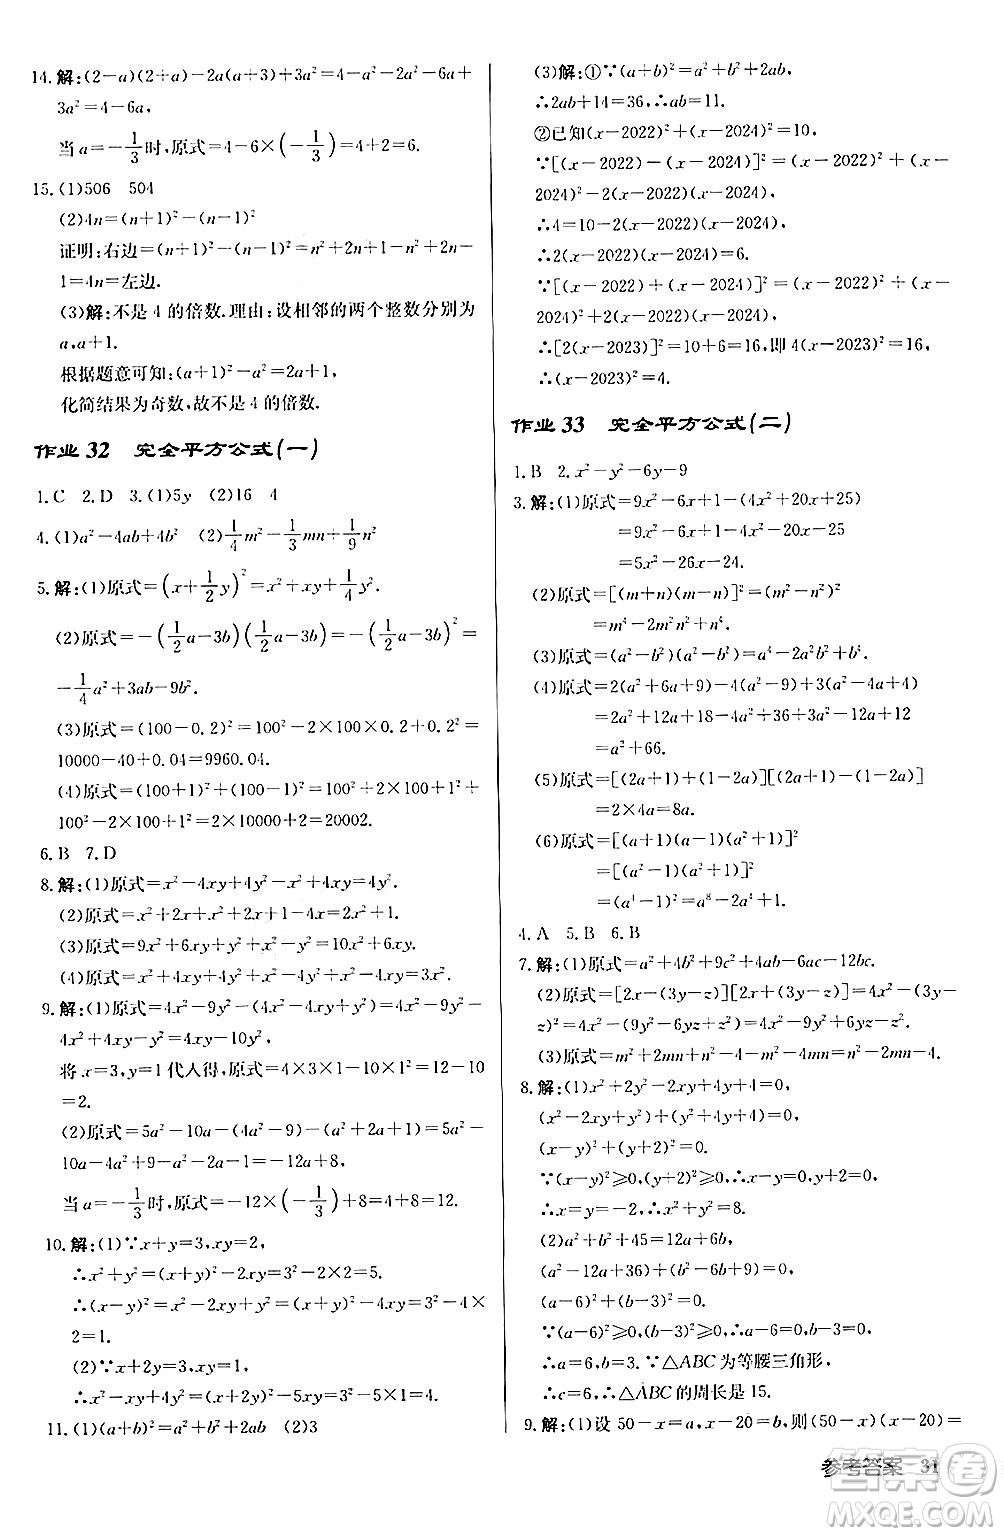 14. 解:(2-a)(2+a)-2a(a+3)+3a²=4-a²-2a²-6a+
3a²=4-6a,
当a=-1/3时,原式=4-6×(-1/3)=4+2=6.
15. (1)506 504
(2)4n=(n+1)²-(n-1)²
证明:右边=(n+1)²-(n-1)²=n²+2n+1-n²+2n-
1=4n=左边.
(3)解:不是4的倍数.理由:设相邻的两个整数分别为
a,a+1.
根据题意可知:(a+1)²-a²=2a+1,
化简结果为奇数,故不是4的倍数.
作业32 完全平方公式(一)
1. C 2. D 3. (1)5y (2)16 4
4. (1)a²-4ab+4b² (2)1/4m²-1/3mn+1/9n²
5. 解:(1)原式=(x+1/2y)²=x²+xy+1/4y².
(2)原式=-(1/2a-3b)(1/2a-3b)=-(1/2a-3b)²=
-1/4a²+3ab-9b².
(3)原式=(100-0.2)²=100²-2×100×0.2+0.2²=
10000-40+0.04=9960.04.
(4)原式=(100+1)²+(100-1)²=100²+2×100+1²+
100²-2×100+1²=2×10000+2=20002.
6. B 7. D
8. 解:(1)原式=x²-4xy+4y²-x²+4xy=4y².
(2)原式=x²+2x+x²+2x+1-4x=2x²+1.
(3)原式=9x²+6xy+y²+x²-y²=10x²+6xy.
(4)原式=x²+4xy+4y²+x²-4y²+x²=4xy+3x².
9. 解:(1)原式=4x²-9y²-(4x²-4xy+y²)=4x²-9y²-
4x²+4xy-y²=4xy-10y².
将x=3,y=1代入得,原式=4×3×1-10×1²=12-10
=2.
(2)原式=5a²-10a-(4a²-9)-(a²+2a+1)=5a²-
10a-4a²+9-a²-2a-1=-12a+8,
当a=-1/3时,原式=-12×(-1/3)+8=4+8=12.
10. 解:(1)∵x+y=3,xy=2,
∴x²+y²=(x+y)²-2xy=3²-2×2=5.
∴(x-y)²=x²-2xy+y²=(x+y)²-4xy=3²-4×
2=1.
(2)∵x+2y=3,xy=1,
∴x²+4y²-xy=(x+2y)²-5xy=3²-5×1=4.
11. (1)(a+b)²=a²+b²+2ab (2)3
(3)解:①∵(a+b)²=a²+b²+2ab,
∴2ab+14=36,∴ab=11.
②已知(x-2022)²+(x-2024)²=10,
∵[(x-2022)-(x-2024)]²=(x-2022)²+(x-
2024)²-2(x-2022)(x-2024),
∴4=10-2(x-2022)(x-2024),
∴2(x-2022)(x-2024)=6.
∵[(x-2022)+(x-2024)]²=(x-2022)²+(x-
2024)²+2(x-2022)(x-2024),
∴[2(x-2023)]²=10+6=16,即4(x-2023)²=16,
∴(x-2023)²=4.
作业33 完全平方公式(二)
1. B 2. x²-y²-6y-9
3. 解:(1)原式=9x²-6x+1-(4x²+20x+25)
=9x²-6x+1-4x²-20x-25
=5x²-26x-24.
(2)原式=[(m+n)(m-n)]²=(m²-n²)²
=m⁴-2m²n²+n⁴.
(3)原式=(a²-b²)(a²-b²)=a⁴-2a²b²+b⁴.
(4)原式=2(a²+6a+9)-4(a²-9)+3(a²-4a+4)
=2a²+12a+18-4a²+36+3a²-12a+12
=a²+66.
(5)原式=[(2a+1)+(1-2a)][(2a+1)-(1-2a)]
=2×4a=8a.
(6)原式=[(a+1)(a-1)(a²+1)]²
=[(a²-1)(a²+1)]²
=(a⁴-1)²=a⁸-2a⁴+1.
4. A 5. B 6. B
7. 解:(1)原式=a²+4b²+9c²+4ab-6ac-12bc.
(2)原式=[2x-(3y-z)][2x+(3y-z)]=4x²-(3y-
z)²=4x²-(9y²-6yz+z²)=4x²-9y²+6yz-z².
(3)原式=m²+2mn+n²-4m²-4mn=n²-3m²-2mn.
8. 解:(1)x²+2y²-2xy+4y+4=0,
(x²-2xy+y²)+(y²+4y+4)=0,
(x-y)²+(y+2)²=0,
∵(x-y)²≥0,(y+2)²≥0,∴x-y=0,y+2=0,
∴x=y=-2,∴x²+y²=8.
(2)a²+b²+45=12a+6b,
(a²-12a+36)+(b²-6b+9)=0,
(a-6)²+(b-3)²=0,
∵(a-6)²≥0,(b-3)²≥0,∴a-6=0,b-3=0,
∴a=6,b=3.∵△ABC为等腰三角形,
∴c=6,∴△ABC的周长是15.
9. 解:(1)设50-x=a,x-20=b,则(50-x)(x-20)=
参考答案 31
答案圈
MXQE.COM